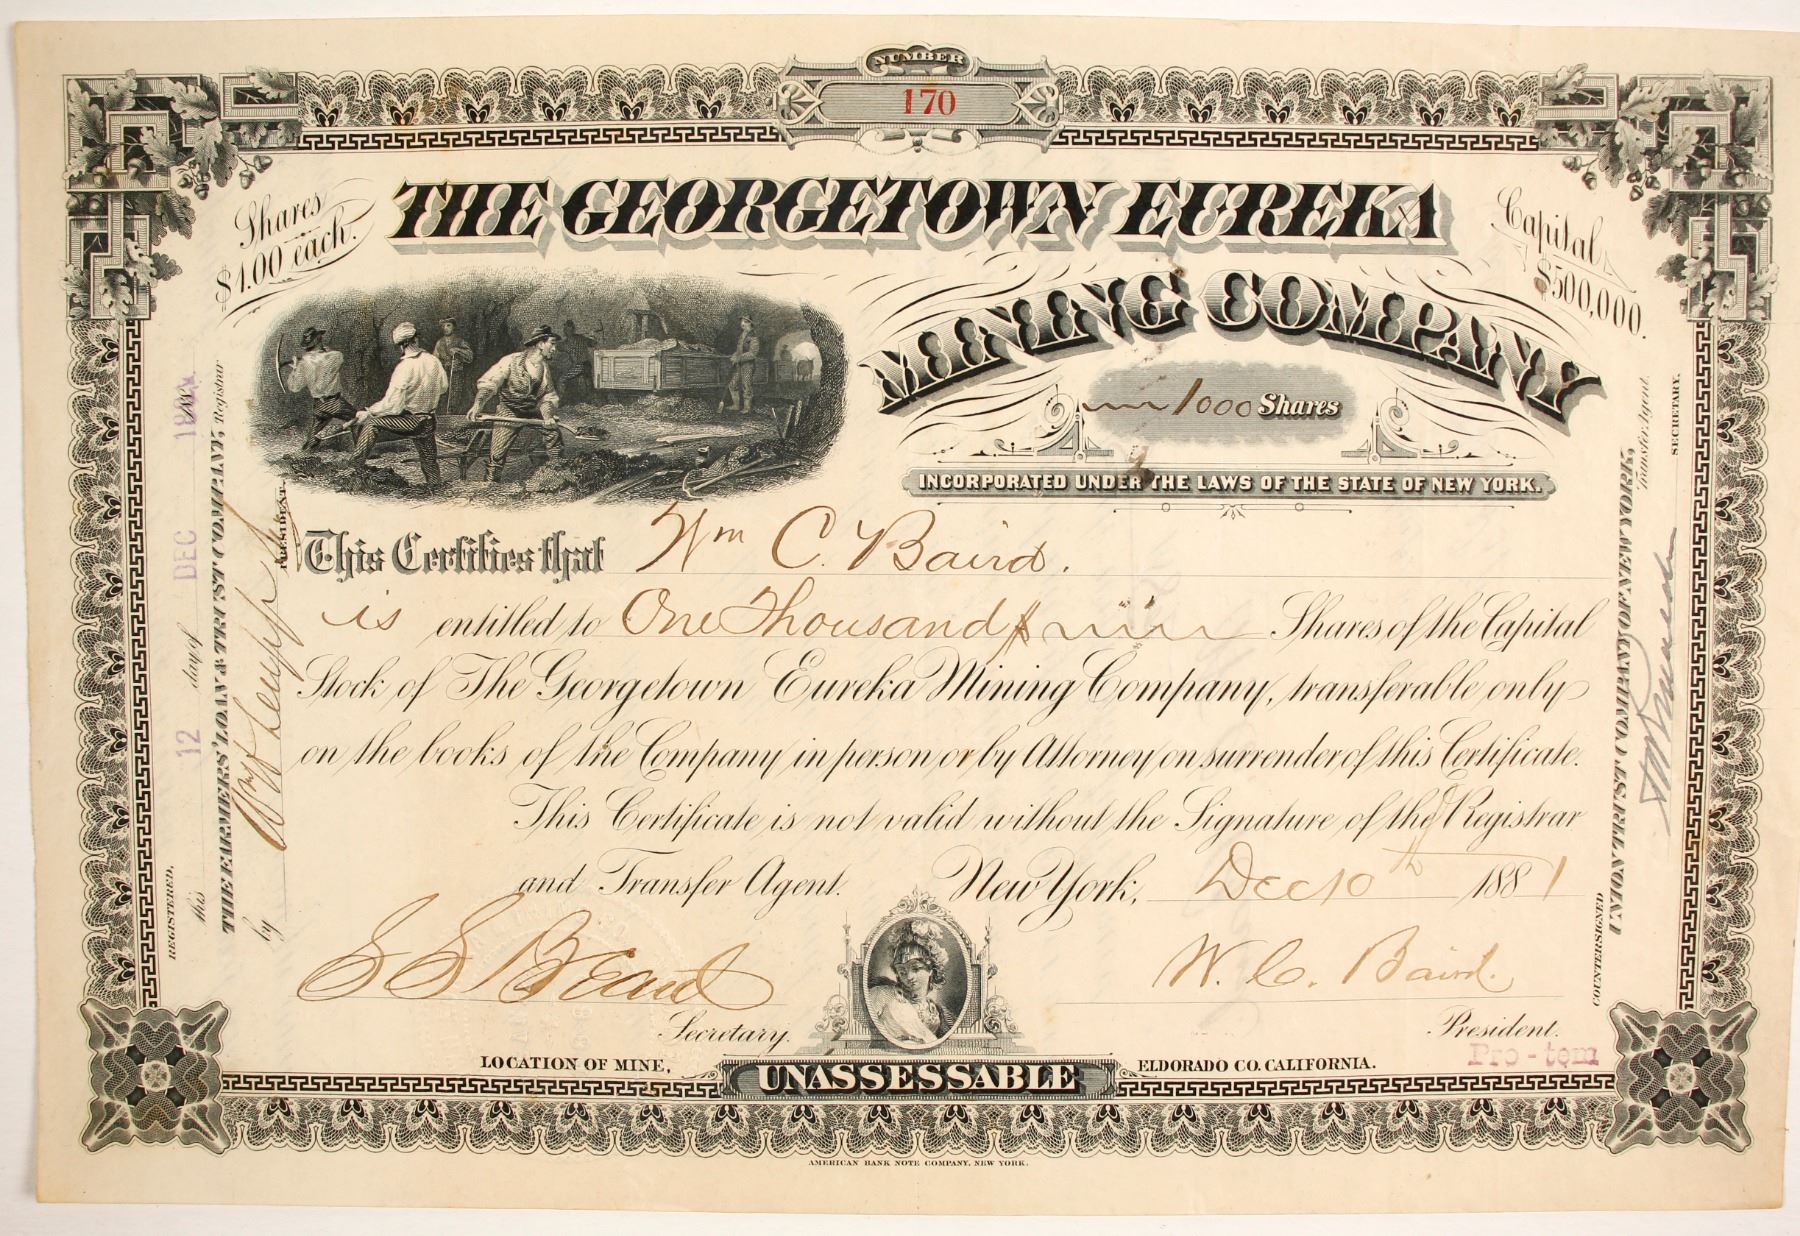 NUMBER
170
Shares
$1.00 each.
THE GEORGETOWN EUREKA
MINING COMPANY
Capital
$500,000.
1000 Shares
INCORPORATED UNDER THE LAWS OF THE STATE OF NEW YORK.
This Certifies that Wm C. Baird.
is entitled to One Thousand Shares of the Capital
Stock of The Georgetown Eureka Mining Company, transferable only
on the books of the Company in person or by Attorney on surrender of this Certificate.
This Certificate is not valid without the Signature of the Registrar
and Transfer Agent. New York, Dec 10th 1881
W. C. Baird.
Secretary.
President.
Pro-tem
LOCATION OF MINE,
UNASSESSABLE
ELDORADO CO. CALIFORNIA.
AMERICAN BANK NOTE COMPANY, NEW YORK.
REGISTERED,
this 12 day of DEC
THE FARMERS' LOAN & TRUST COMPANY, Registrar
by
PRESIDENT.
COUNTERSIGNED
UNION TRUST COMPANY OF NEW YORK, Transfer Agent.
SECRETARY.